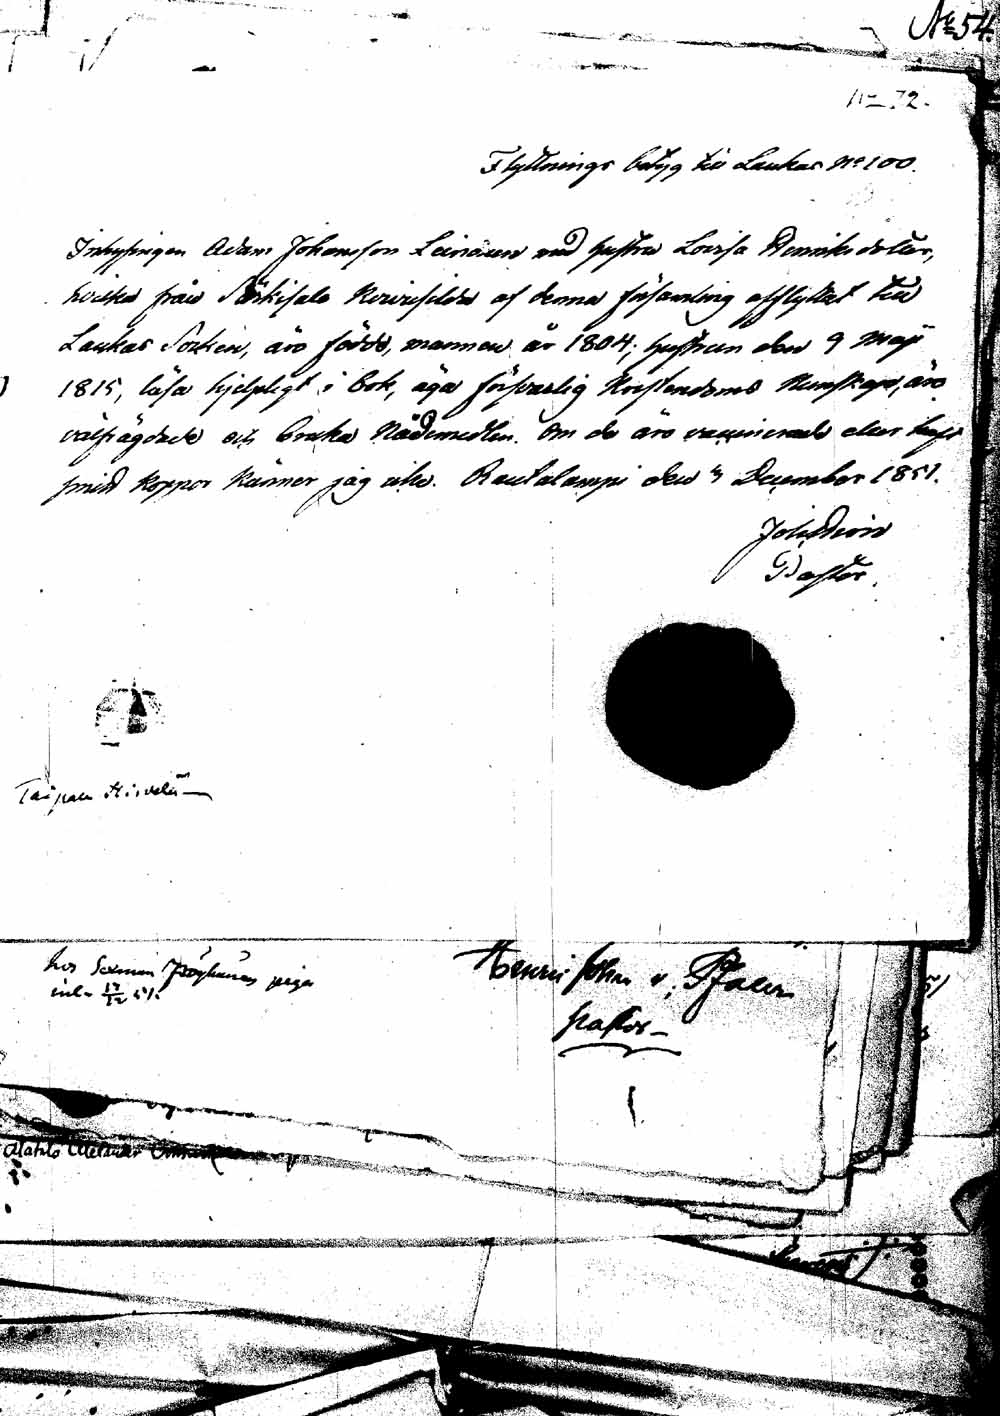 № 54.
№ 72.
Flyttnings betyg till Laukas No 100.
Inhysingen Adam Johansson Leinonen med hustru Lovisa Henriksdotter,
hvilka från Särkisalo af denna församling afflyttat till
Laukas Socken, äro födde, mannen år 1804; hustrun den 9 Maji
1815, läsa hjelpligt i bok, äga försvarlig Kristendoms Kunskap, äro
välfrägdade och bruka Nådemedlen. Om de äro vaccinerade eller haft
smitt koppor känner jag icke. Rautalampi den 3 December 1851.
Joh.
Pastor.
Taipale
hos Sexman piga
Henric John v.
pastor